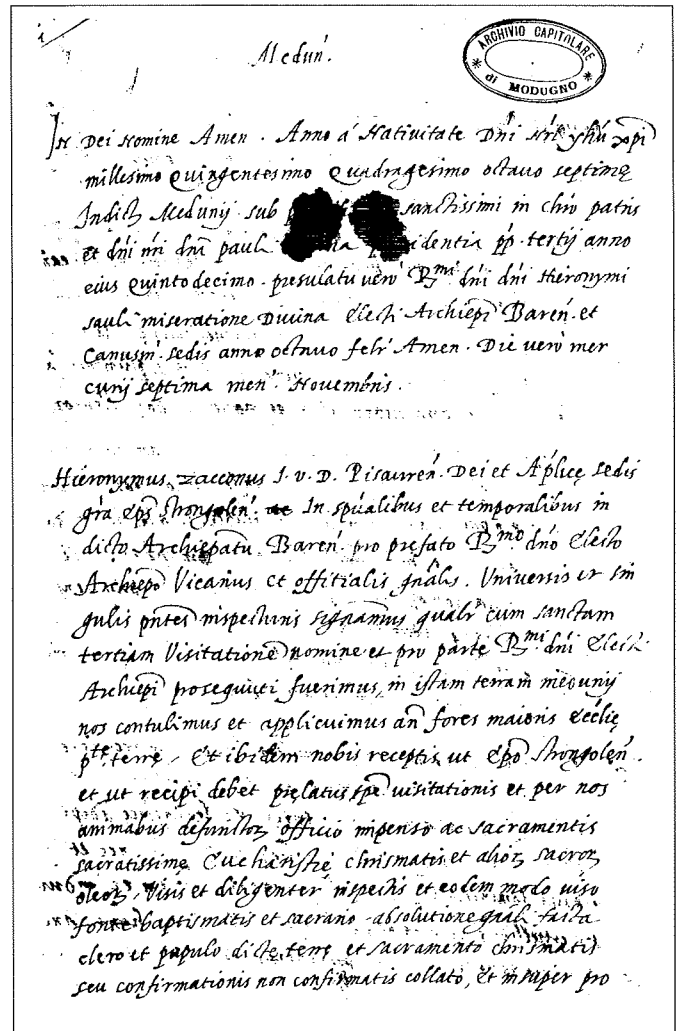 Medun̄.
ARCHIVIO CAPITOLARE
di MODUGNO
In Dei Nomine Amen. Anno á Nativitate Dn̄i Nr̄i yhū xpi
millesimo Quingentesimo Quadragesimo octavo septimę
Indictꝭ Medunij sub sanctissimi in chrō patris
et dn̄i nr̄i dn̄i pauli identia pp̄. tertij anno
eius Quintodecimo. presulatu verò R^mi dn̄i dn̄i Hieronymi
sauli miseratione Divina Electi Archiepī Baren̄. et
Canusin̄. sedis anno octavo felr̄ Amen. Die verò mer
curij septima men̄. Novembris.
Hieronymus zacconus I. v. D. Pisauren̄. Dei et Aplicę sedis
grā Eps̄ strongolen̄. In sp̄ualibus et temporalibus in
dicto Archiepatu Baren̄. pro prefato R^mo dn̄o Electo
Archiepō Vicarius et offitialis gn̄alis. Universis et sin
gulis pn̄tes inspecturis signamus qualr̄ cum sanctam
tertiam Visitationē nomine et pro parte R^mi dn̄i Electi
Archiepī prosequuti fuerimus, in istam terram medunij
nos contulimus et applicuimus an̄ fores maioris Ecclię
p^te terrę, Et ibidem nobis receptis ut Epō strongolen̄.
et ut recipi debet pręlatus spē visitationis et per nos
animabus defunctoꝝ officio impenso ac sacramentis
sacratissimę Eucharistię chrismatis et alioꝝ sacroꝝ
oleoꝝ, Visis et diligenter inspectis et eodem modo viso
fonte baptismatis et sacrario absolutione gn̄ali facta
clero et populo dictę terrę et sacramento chrismatis
seu confirmationis non confirmatis collato, et insuper pro